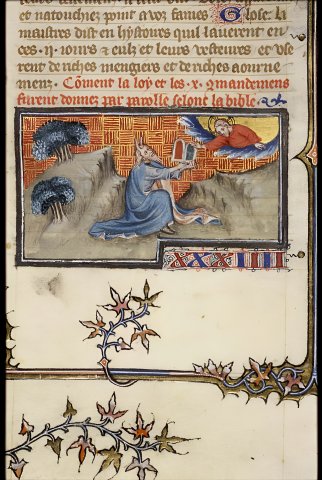 et natouchiez point a voz fames Glose. Li
maistres dist en hystoires quil lauerent en
ces .ij. iours & eulz et leurs vesteures et use
rent de riches mengiers et de riches aourne
menz. Cōment la loy et les .x. 9mandemens
furent donnez par parolle selont la bible.
XXXIIII